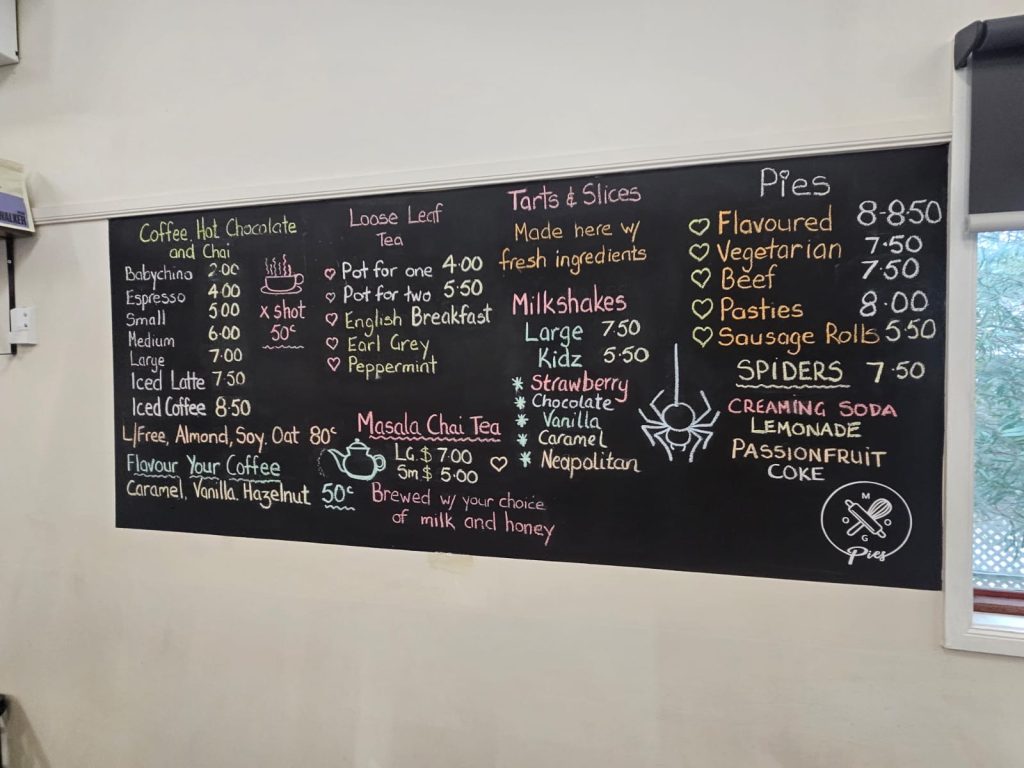 WALKER
Coffee, Hot Chocolate
and Chai
Babychino 2.00
Espresso 4.00
Small 5.00
Medium 6.00
Large 7.00
Iced Latte 7.50
Iced Coffee 8.50
x shot
50c
L/Free, Almond, Soy, Oat 80c
Flavour Your Coffee
Caramel, Vanilla, Hazelnut 50c
Loose Leaf
Tea
Pot for one 4.00
Pot for two 5.50
English Breakfast
Earl Grey
Peppermint
Masala Chai Tea
LG $ 7.00
Sm $ 5.00
Brewed w/ your choice
of milk and honey
Tarts & Slices
Made here w/
fresh ingredients
Milkshakes
Large 7.50
Kidz 5.50
Strawberry
Chocolate
Vanilla
Caramel
Neapolitan
Pies
Flavoured 8-8.50
Vegetarian 7.50
Beef 7.50
Pasties 8.00
Sausage Rolls 5.50
SPIDERS 7.50
CREAMING SODA
LEMONADE
PASSIONFRUIT
COKE
M
G
Pies